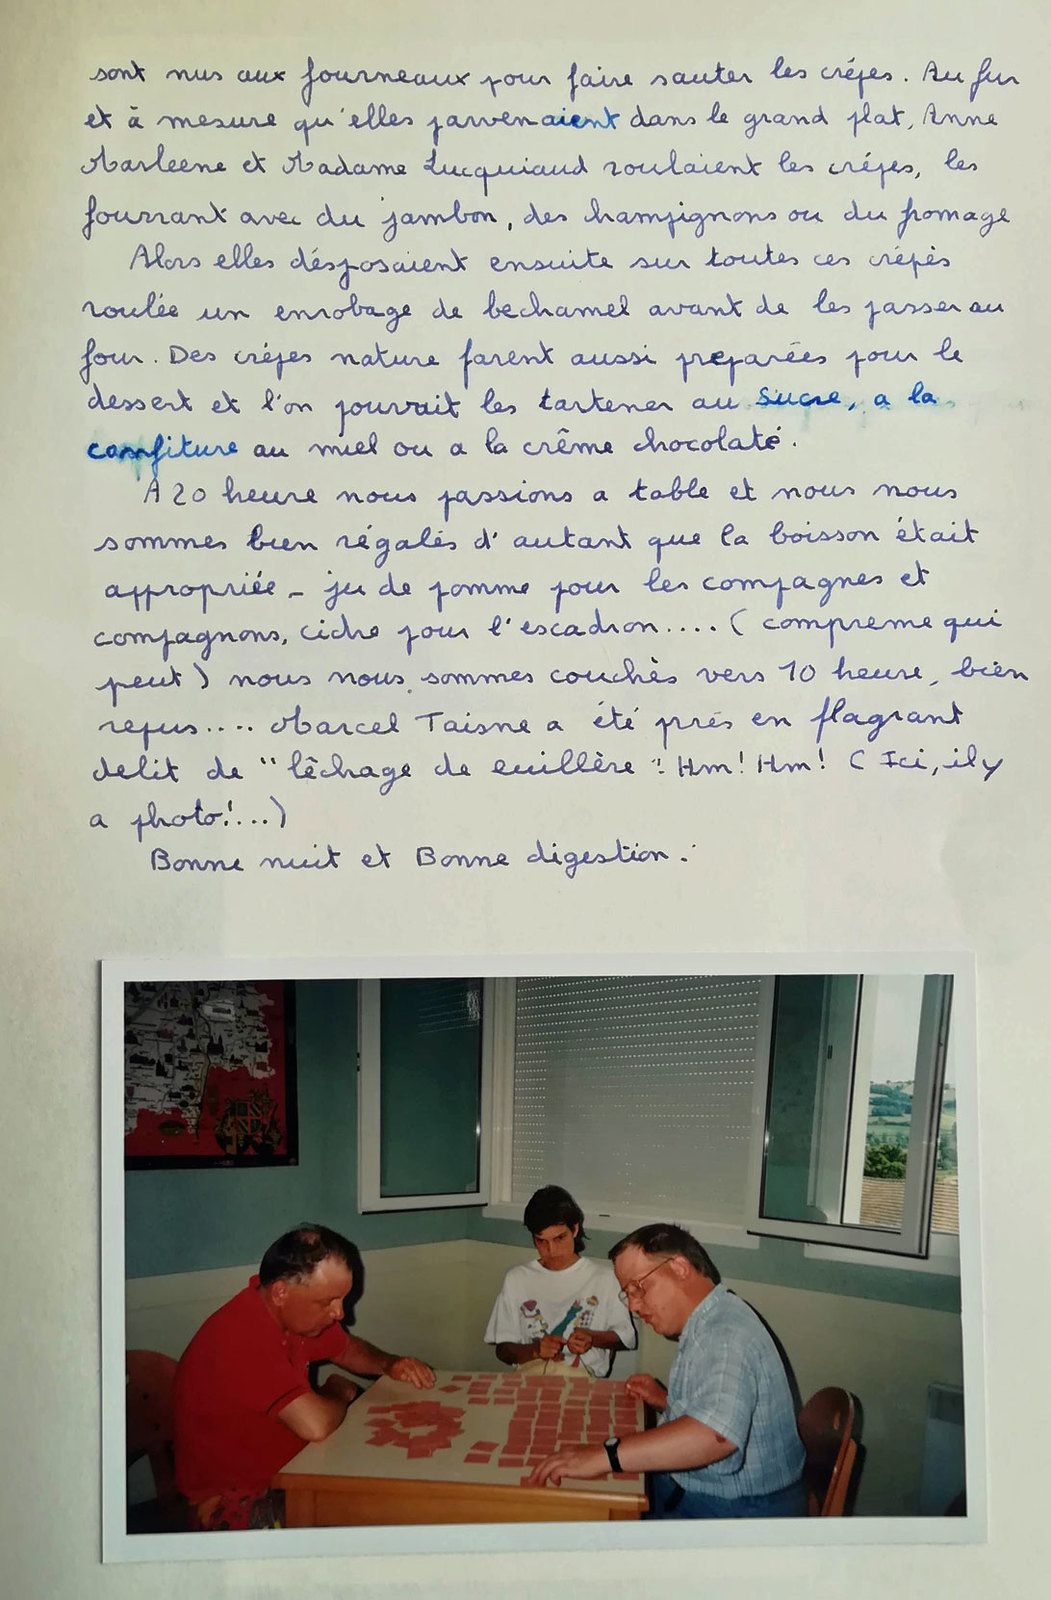 sont nus aux fourneaux pour faire sauter les crépes. Au fur
et à mesure qu'elles parvenaient dans le grand plat, Anne
Marleene et Madame Lucquiaud roulaient les crépes, les
fourrant avec du jambon, des hampignons ou du fromage
Alors elles désposaient ensuite sur toutes ces crépès
roulée un enrobage de bechamel avant de les passer au
four. Des crépes nature farent aussi preparées pour le
dessert et l'on pouvait les tartener au sucre, a la
confiture au miel ou a la crême chocolaté.
A 20 heure nous passions a table et nous nous
sommes bien régalés d'autant que la boisson était
appropriée - ju de pomme pour les compagnes et
compagnons, cidre pour l'escadron.... (ompreme qui
peut ) nous nous sommes couchès vers 10 heure, bien
repus.... Marcel Taisne a été prés en flagrant
delit de "lêchage de euillère": Hm! Hm! ( Ici, il y
a photo!...)
Bonne nuit et Bonne digestion.